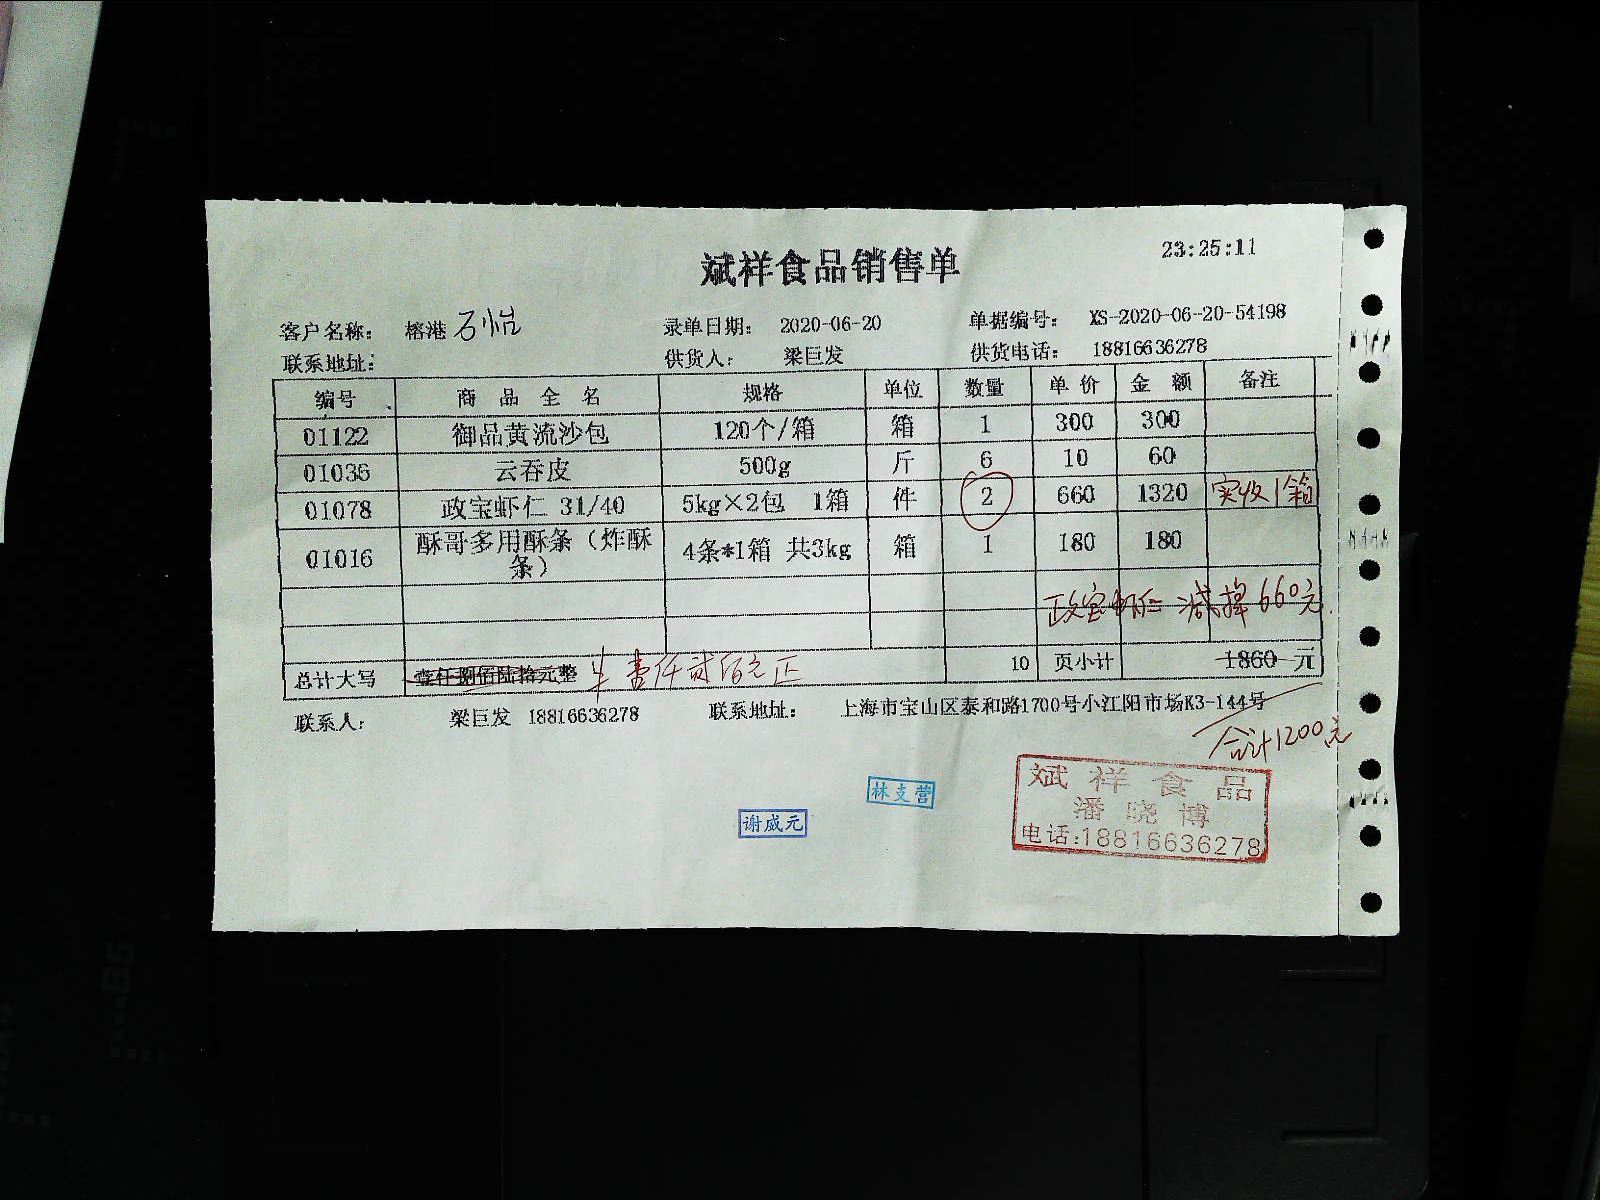 斌祥食品销售单 23:25:11
客户名称: 榕港 石怡 录单日期: 2020-06-20 单据编号: XS-2020-06-20-54198
联系地址: 供货人: 梁巨发 供货电话: 18816636278
编号 商品全名 规格 单位 数量 单价 金额 备注
01122 御品黄流沙包 120个/箱 箱 1 300 300
01036 云吞皮 500g 斤 6 10 60
01078 政宝虾仁 31/40 5kg×2包 1箱 件 2 660 1320 实收1箱
01016 酥哥多用酥条（炸酥条） 4条*1箱 共3kg 箱 1 180 180
政宝虾仁 减掉660元
总计大写 壹仟捌佰陆拾元整 壹仟贰佰元正 10 页小计 1860 元
联系人: 梁巨发 18816636278 联系地址: 上海市宝山区泰和路1700号小江阳市场K3-144号
合计1200元
斌祥食品
潘晓博
电话:18816636278
林支营
谢威元